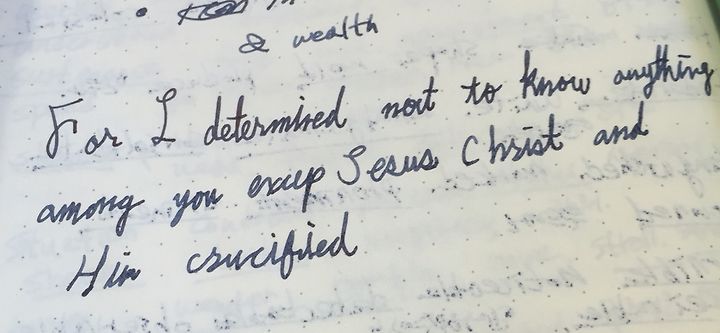 & wealth
For I determined not to know anything
among you excep Jesus Christ and
Him crucified